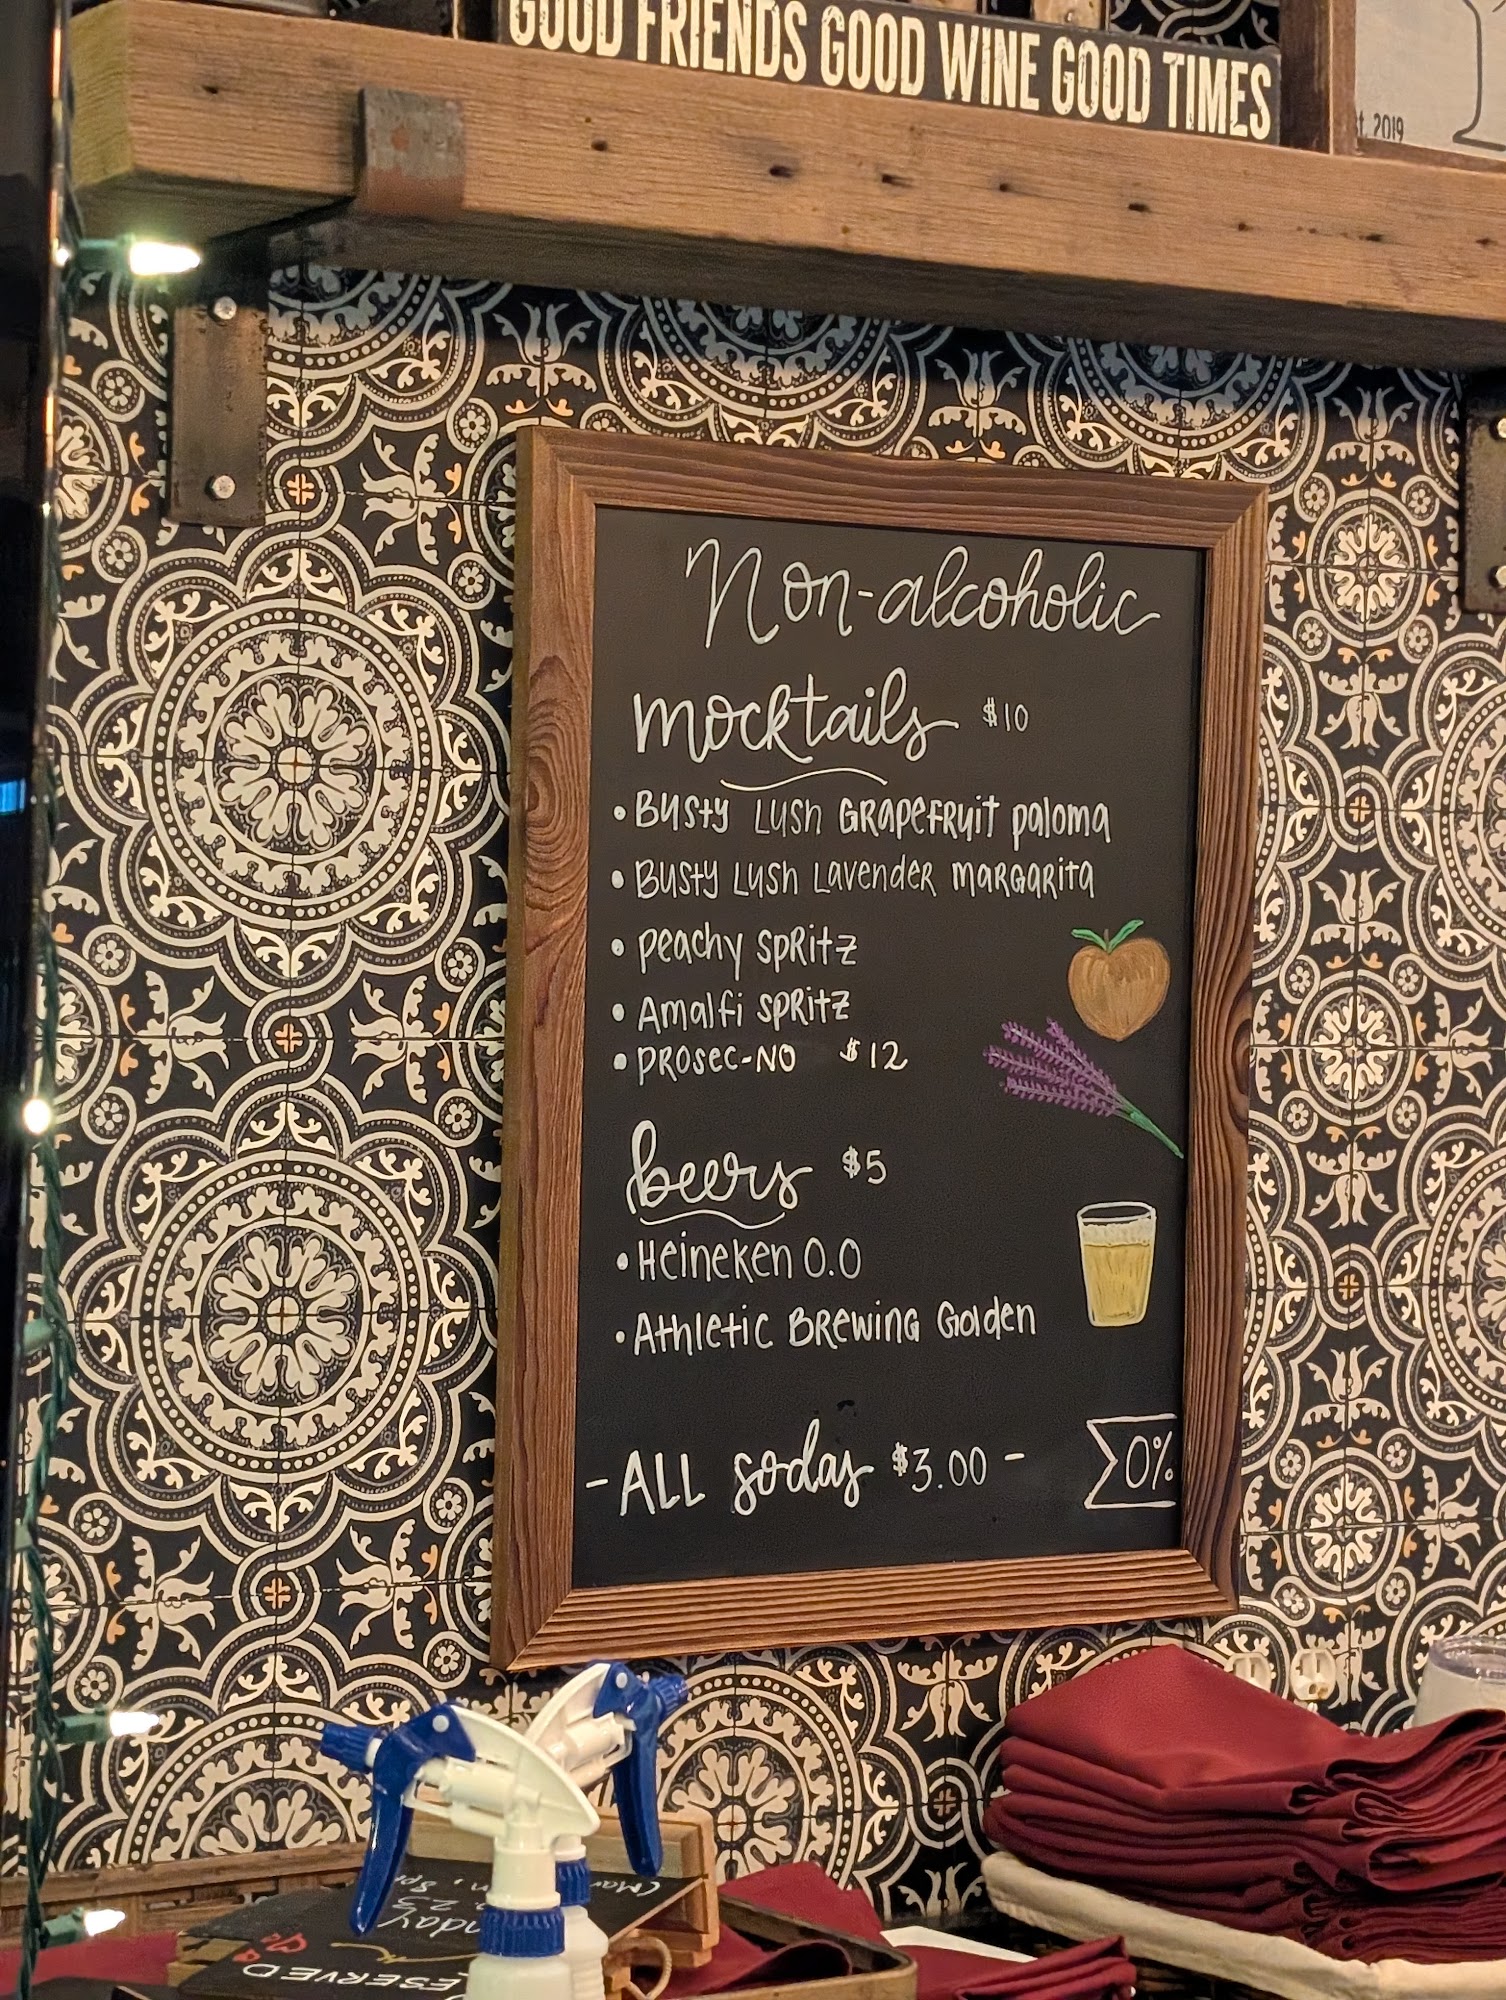 GOOD FRIENDS GOOD WINE GOOD TIMES
2019
Non-alcoholic
mocktails $10
• Busty Lush Grapefruit paloma
• Busty Lush Lavender margarita
• peachy spritz
• Amalfi spritz
• prosec-no $12
beers $5
• Heineken 0.0
• Athletic Brewing Golden
- ALL sodas $3.00 -
0%